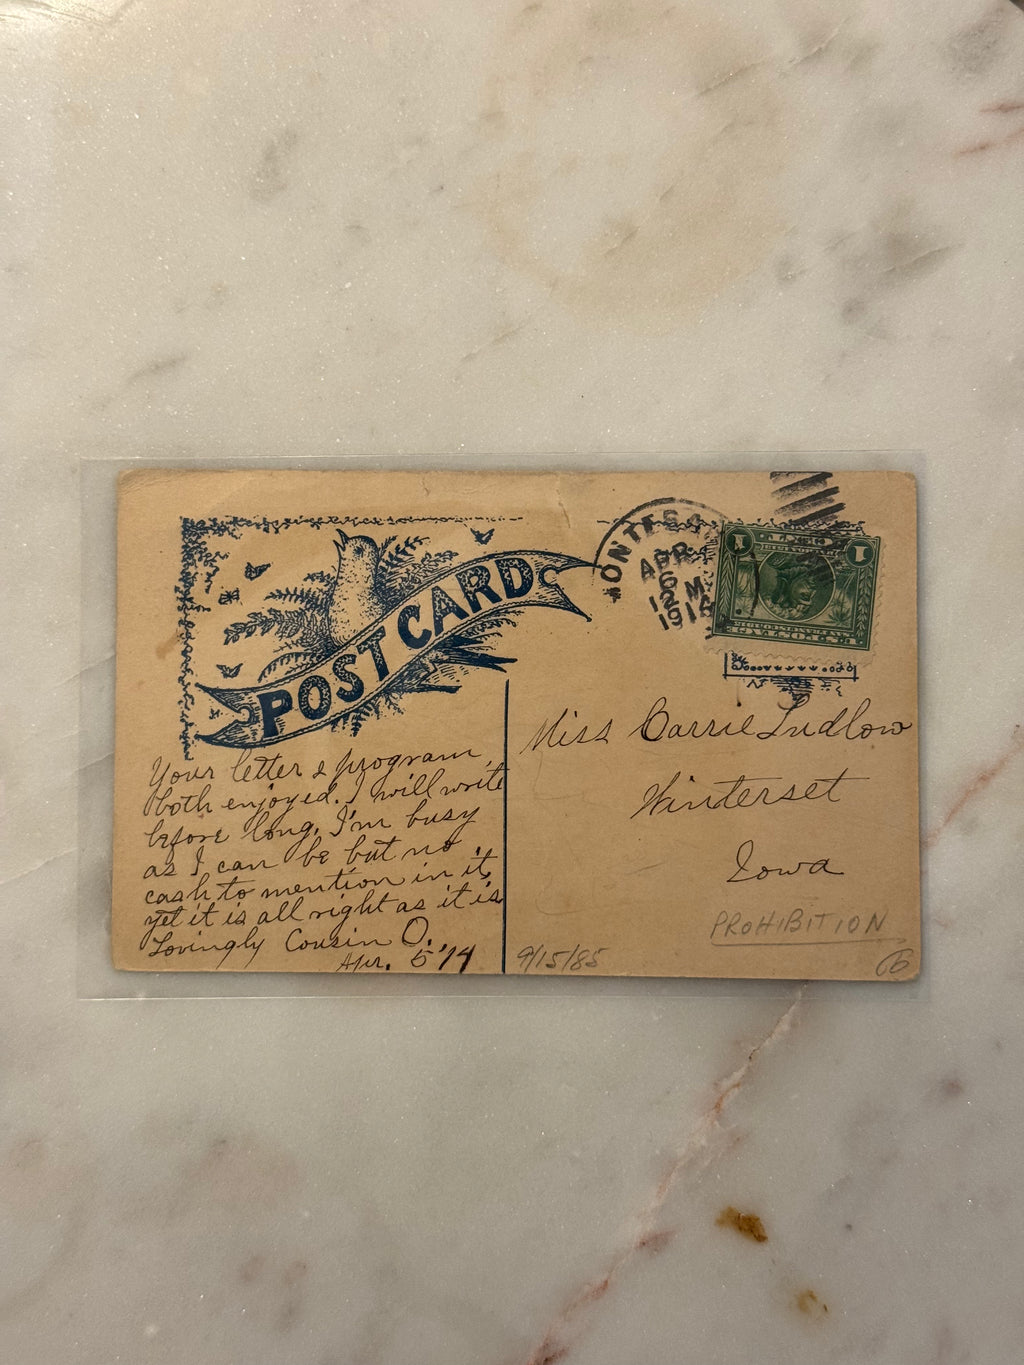 POST CARD
Your letter & program
both enjoyed. I will write
before long. I'm busy
as I can be but no
cash to mention in it,
yet it is all right as it is
Lovingly Cousin O.
Apr. 5 '14
MONTESA
APR
6
M
1914
1
1
Miss Carrie Ludlow
Winterset
Iowa
PROHIBITION
9/15/85